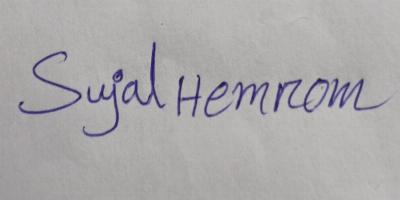 Sujal Hemrom